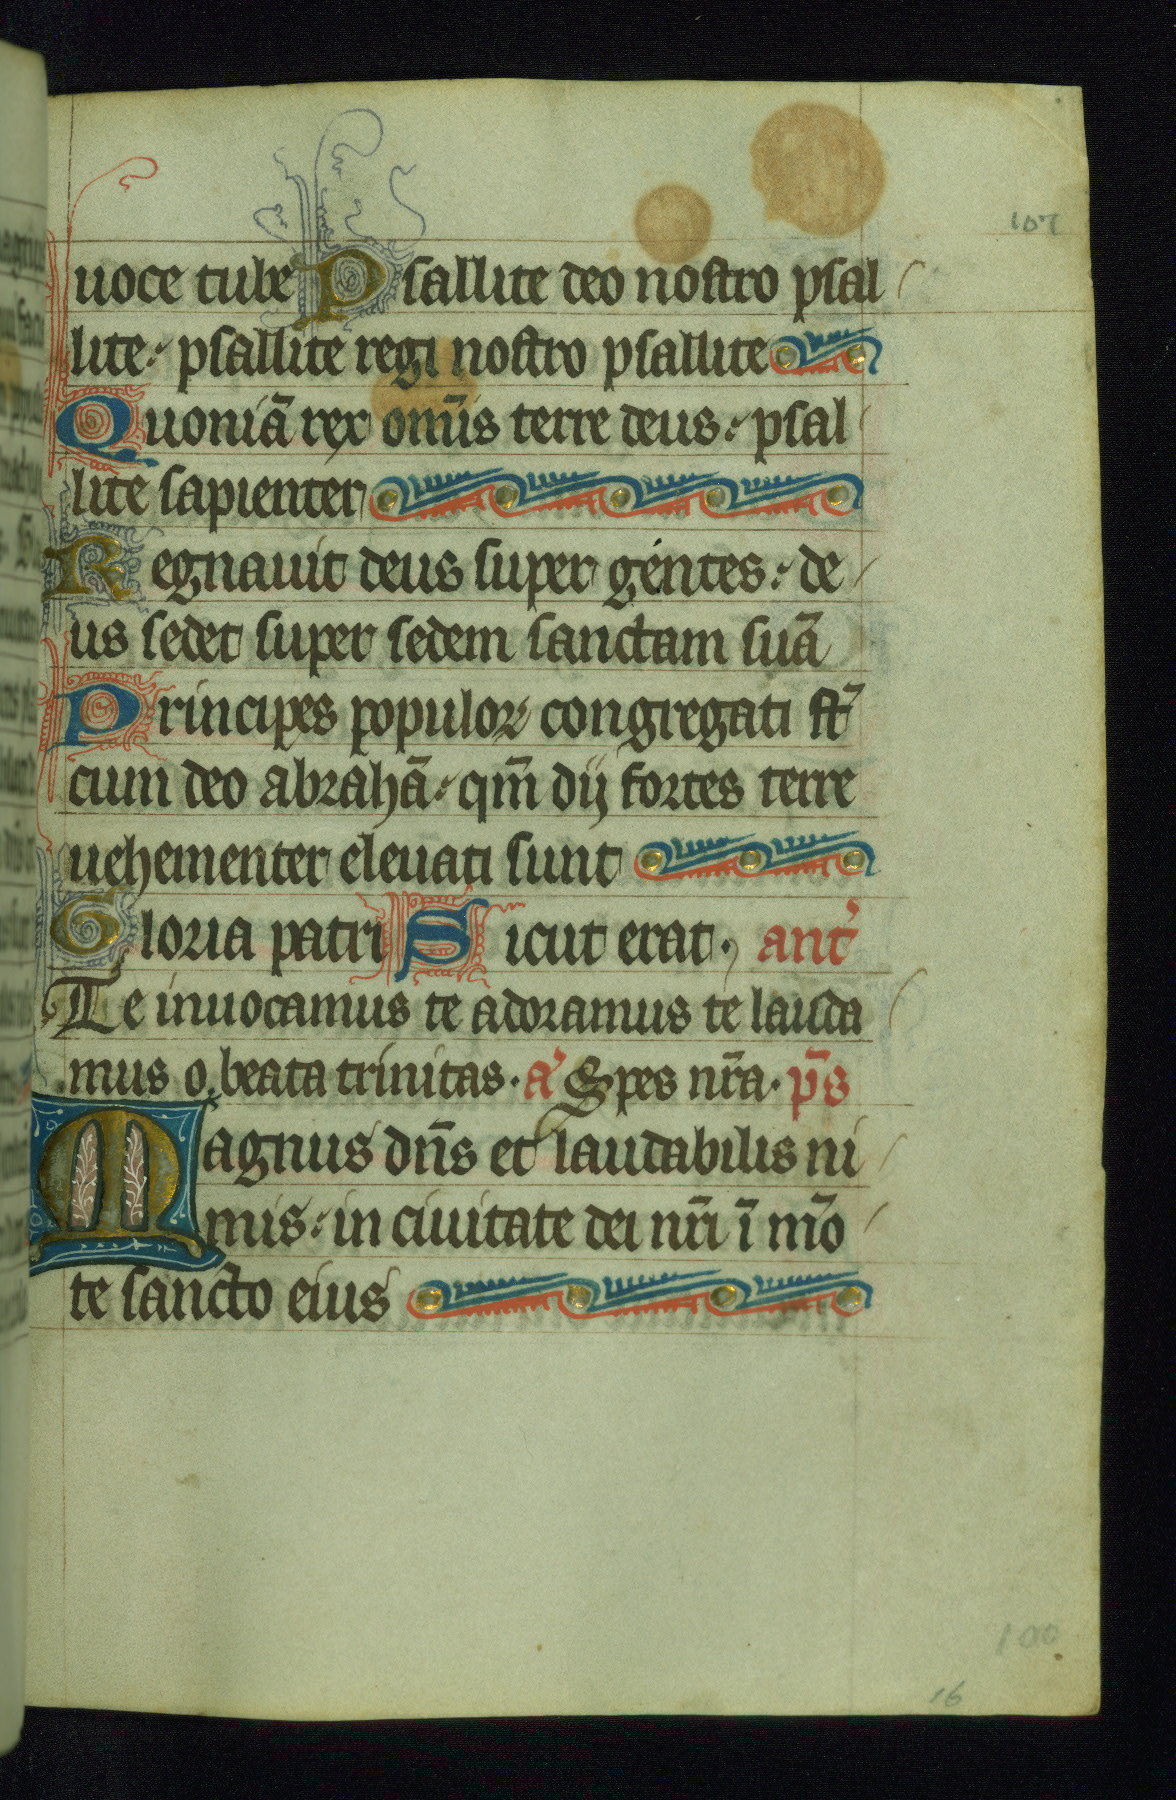 107
uoce tube Psallite deo nostro psal
lite : psallite regi nostro psallite
Quoniā rex om̄is terre deus : psal
lite sapienter
Regnauit deus super gentes : de
us sedet super sedem sanctam suā
Principes populoꝝ congregati st̄
cum deo abrahā : qm̄ dij fortes terre
uehementer eleuati sunt
Gloria patri Sicut erat · ant̓
Te inuocamus te adoramus te lauda
mus o beata trinitas · a̓ Spes nr̄a · p̄s
Magnus dn̄s et laudabilis ni
mis : in ciuitate dei nr̄i ī mō
te sancto eius
100
16